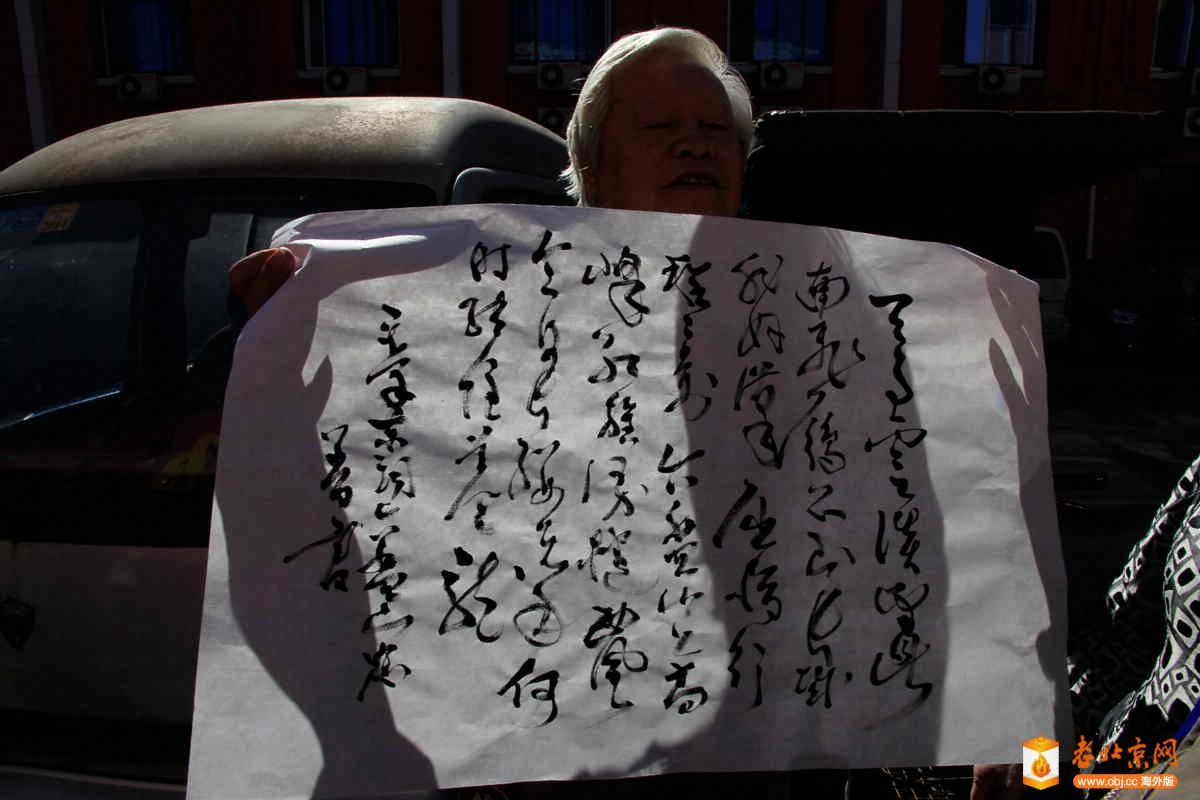 天高云淡望断
南飞雁不到长城
非好汉屈指行
程二万六盘山上高
峰红旗漫卷西风
今日长缨在手何
时缚住苍龙
毛泽东词六盘山
书
老北京网
www.obj.cc 海外版